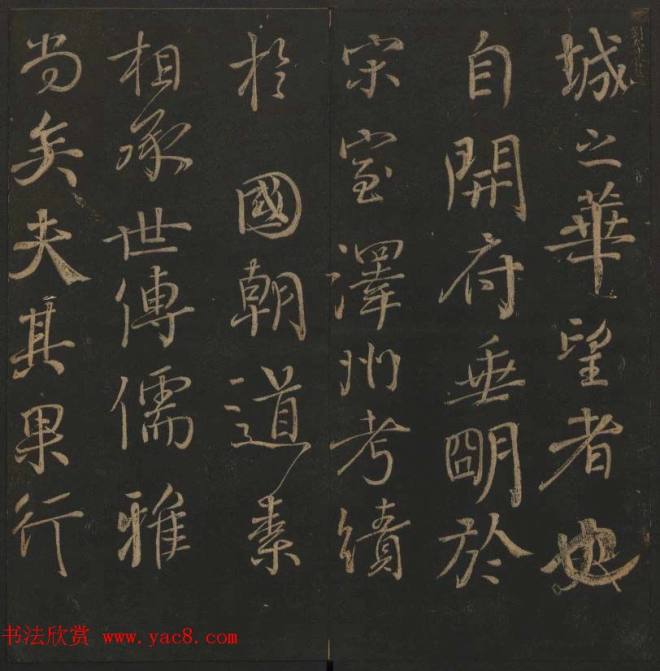 城之華望者也
自開府垂明於
宋室澤州考績
於國朝道素
相承世傳儒雅
尚矣夫其果行
书法欣赏 www.yac8.com